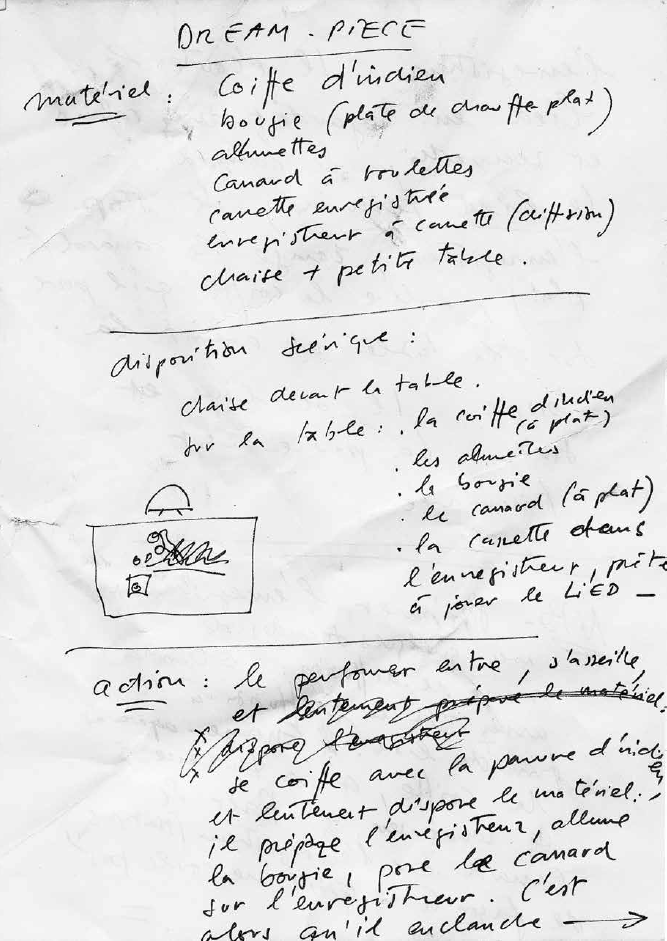 DREAM - PIECE
matériel : Coiffe d'indien
bougie (plate de chauffe plat)
allumettes
canard à roulettes
cassette enregistrée
enregistreur à cassette (diffusion)
chaise + petite table.
disposition scénique :
chaise devant la table.
sur la table : . la coiffe d'indien
(à plat)
. les allumettes
. la bougie
. le canard (à plat)
. la cassette dans
l'enregistreur, prête
à jouer le LIED —
action : le performer entre, s'asseille,
et lentement prépare le matériel.
dispose l'enregistreur
se coiffe avec la parure d'indien
et lentement dispose le matériel :
il prépare l'enregistreur, allume
la bougie, pose le canard
sur l'enregistreur. C'est
alors qu'il enclanche →